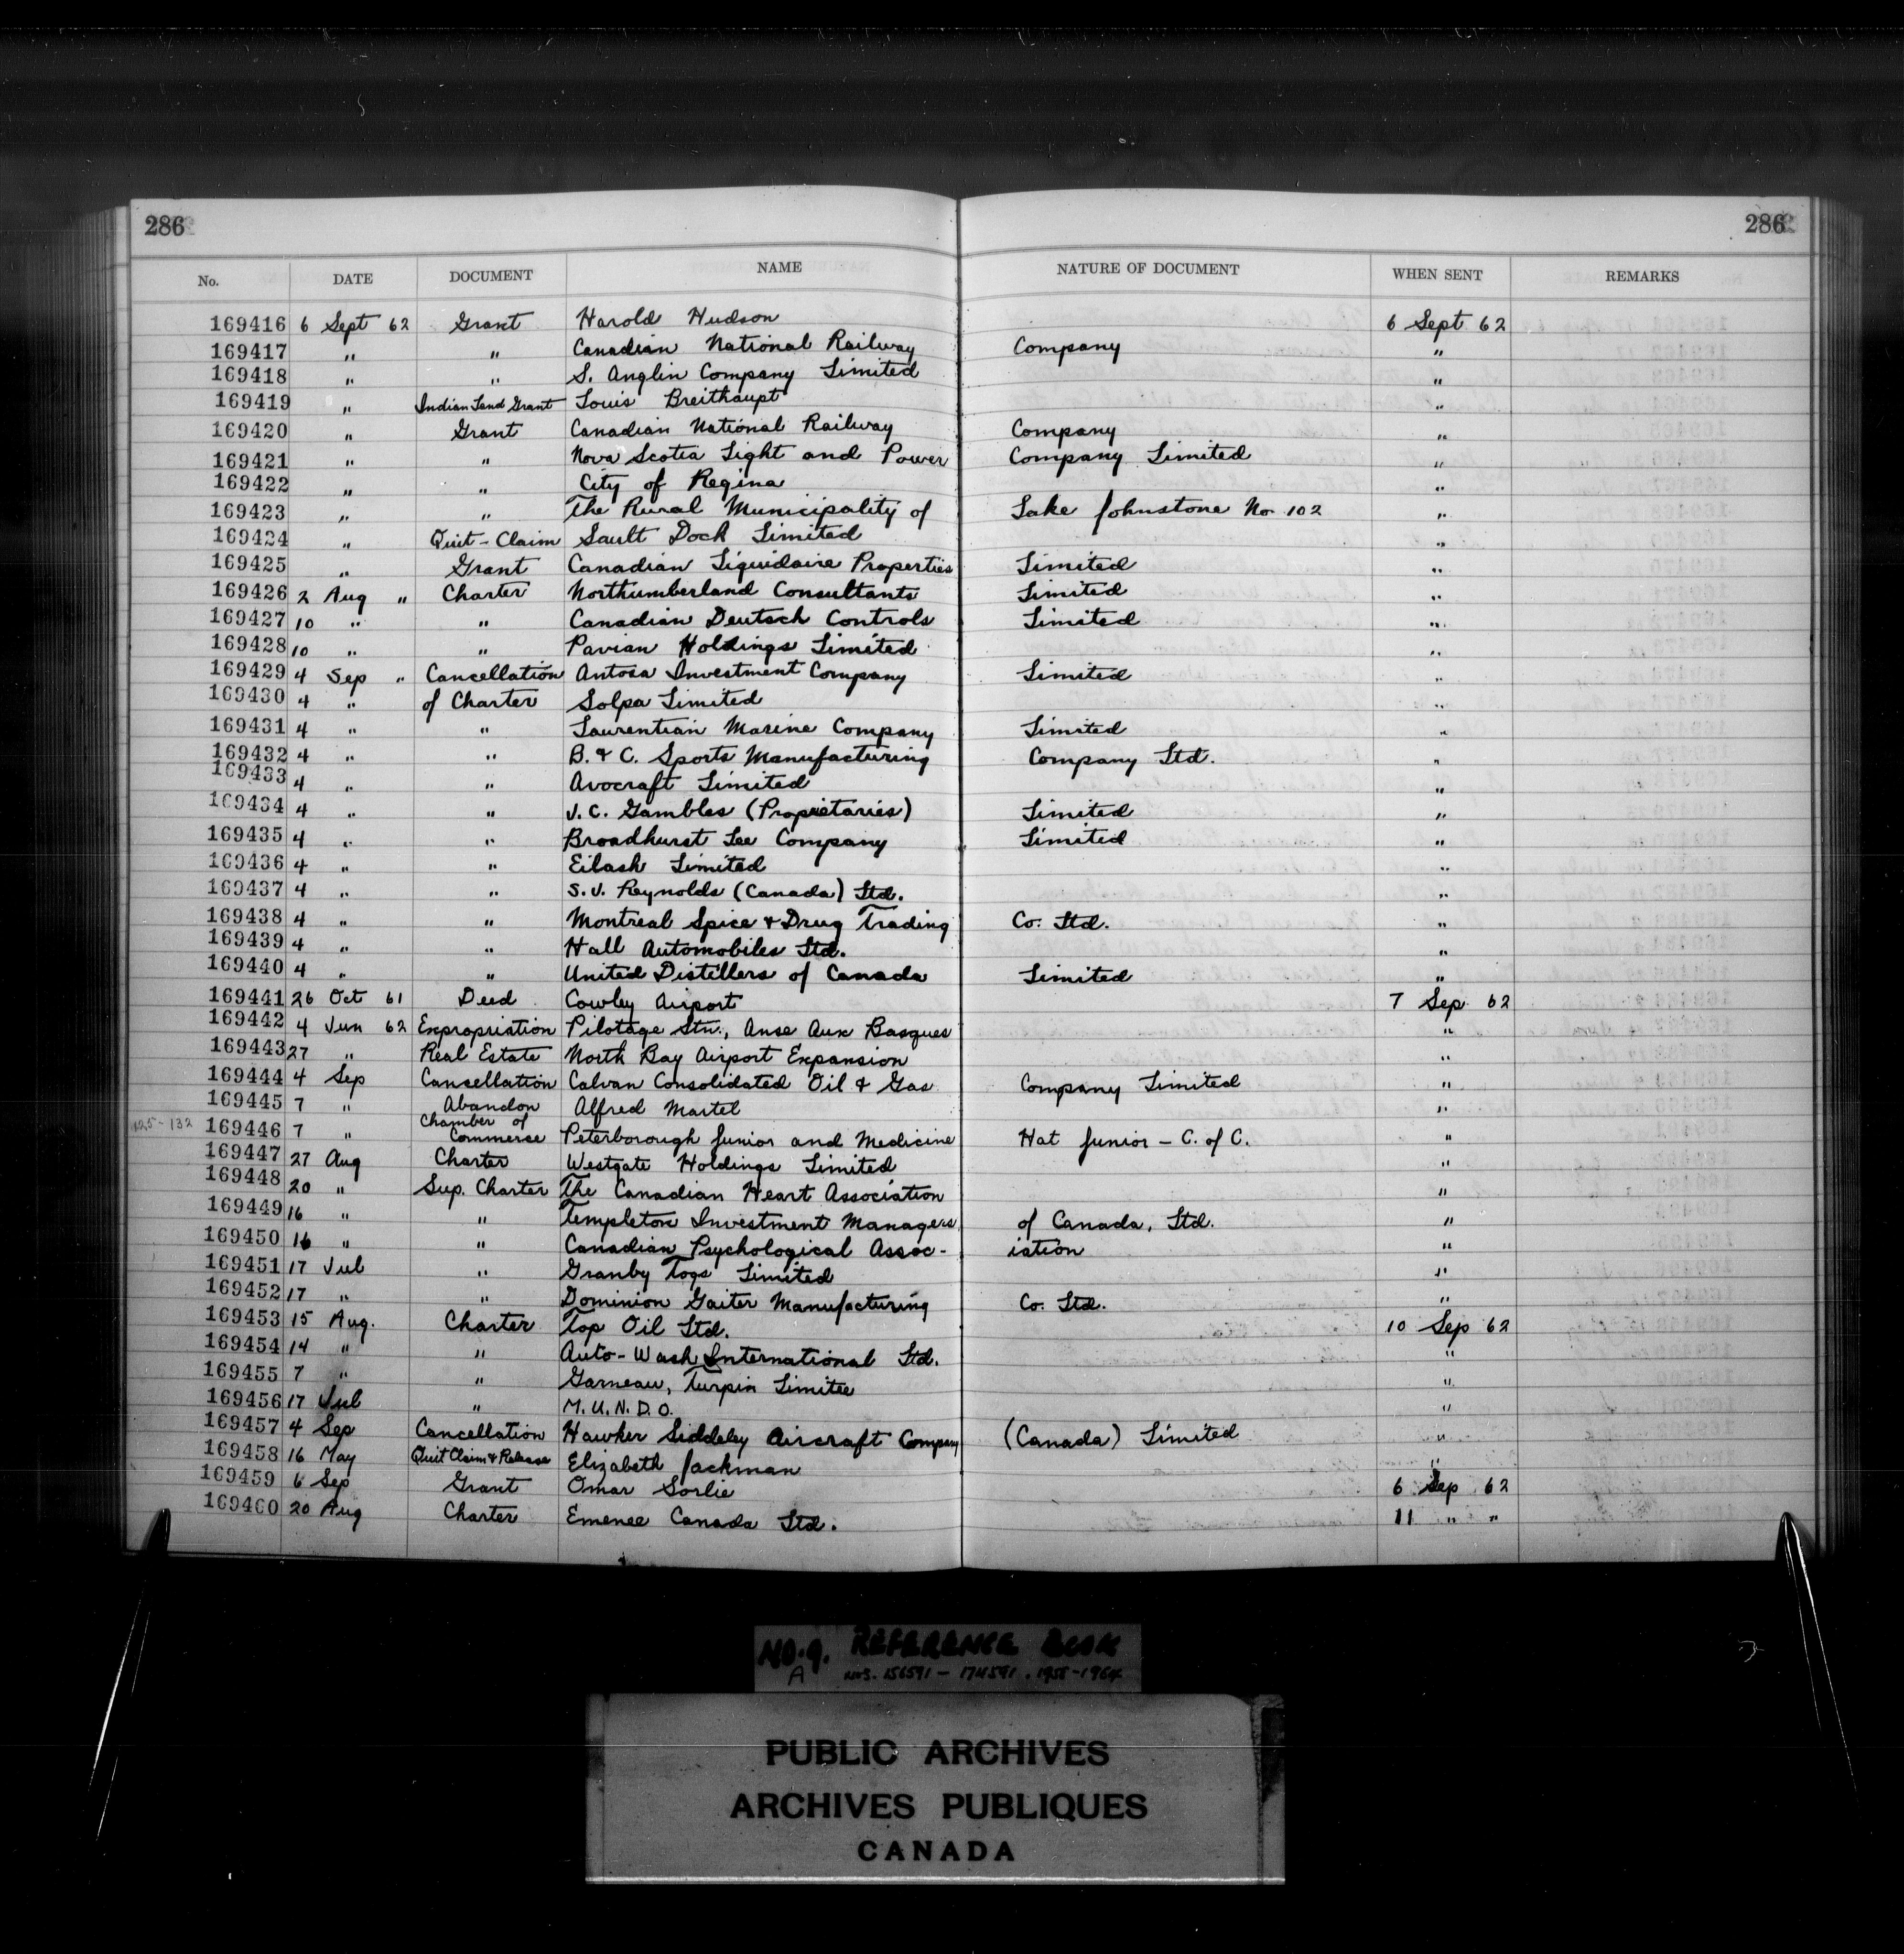 286 286
No. DATE DOCUMENT NAME NATURE OF DOCUMENT WHEN SENT REMARKS
169416 6 Sept 62 Grant Harold Hudson 6 Sept 62
169417 " " Canadian National Railway Company "
169418 " " S. Anglin Company Limited "
169419 " Indian Land Grant Louis Breithaupt "
169420 " Grant Canadian National Railway Company "
169421 " " Nova Scotia Light and Power Company Limited "
169422 " " City of Regina "
169423 " " The Rural Municipality of Lake Johnstone No. 102 "
169424 " Quit-Claim Sault Dock Limited "
169425 " Grant Canadian Liquidaire Properties Limited "
169426 2 Aug " Charter Northumberland Consultants Limited "
169427 10 " " Canadian Deutsch Controls Limited "
169428 10 " " Pavian Holdings Limited "
169429 4 Sep " Cancellation Antosa Investment Company Limited "
169430 4 " of Charter Solpa Limited "
169431 4 " " Laurentian Marine Company Limited "
169432 4 " " B. & C. Sports Manufacturing Company Ltd. "
169433 4 " " Avocraft Limited "
169434 4 " " J. C. Gambles (Proprietaries) Limited "
169435 4 " " Broadhurst Lee Company Limited "
169436 4 " " Eilash Limited "
169437 4 " " S. J. Reynolds (Canada) Ltd. "
169438 4 " " Montreal Spice & Drug Trading Co. Ltd. "
169439 4 " " Hall Automobiles Ltd. "
169440 4 " " United Distillers of Canada Limited "
169441 26 Oct 61 Deed Cowley Airport 7 Sep 62
169442 4 Jun 62 Expropriation Pilotage Stn., Anse Aux Basques "
169443 27 " Real Estate North Bay Airport Expansion "
169444 4 Sep Cancellation Calvan Consolidated Oil & Gas Company Limited "
169445 7 " Abandon Alfred Martel "
169446 7 " Chamber of Commerce Peterborough Junior and Medicine Hat Junior - C. of C. "
169447 27 Aug Charter Westgate Holdings Limited "
169448 20 " Sup. Charter The Canadian Heart Association "
169449 16 " " Templeton Investment Managers of Canada, Ltd. "
169450 16 " " Canadian Psychological Assoc-iation "
169451 17 Jul " Granby Togs Limited "
169452 17 " " Dominion Gaiter Manufacturing Co. Ltd. "
169453 15 Aug. Charter Top Oil Ltd. 10 Sep 62
169454 14 " " Auto-Wash International Ltd. "
169455 7 " " Garneau, Turpin Limitee "
169456 17 Jul " M.U.N.D.O. "
169457 4 Sep Cancellation Hawker Siddeley Aircraft Company (Canada) Limited "
169458 16 May Quit Claim & Release Elizabeth Jackman "
169459 6 Sep Grant Omar Sorlie 6 Sep 62
169460 20 Aug Charter Emenee Canada Ltd. 11 " "
NO. 9. REFERENCE BOOK
A NOS. 156591 - 174591. 1958-1964
PUBLIC ARCHIVES
ARCHIVES PUBLIQUES
CANADA